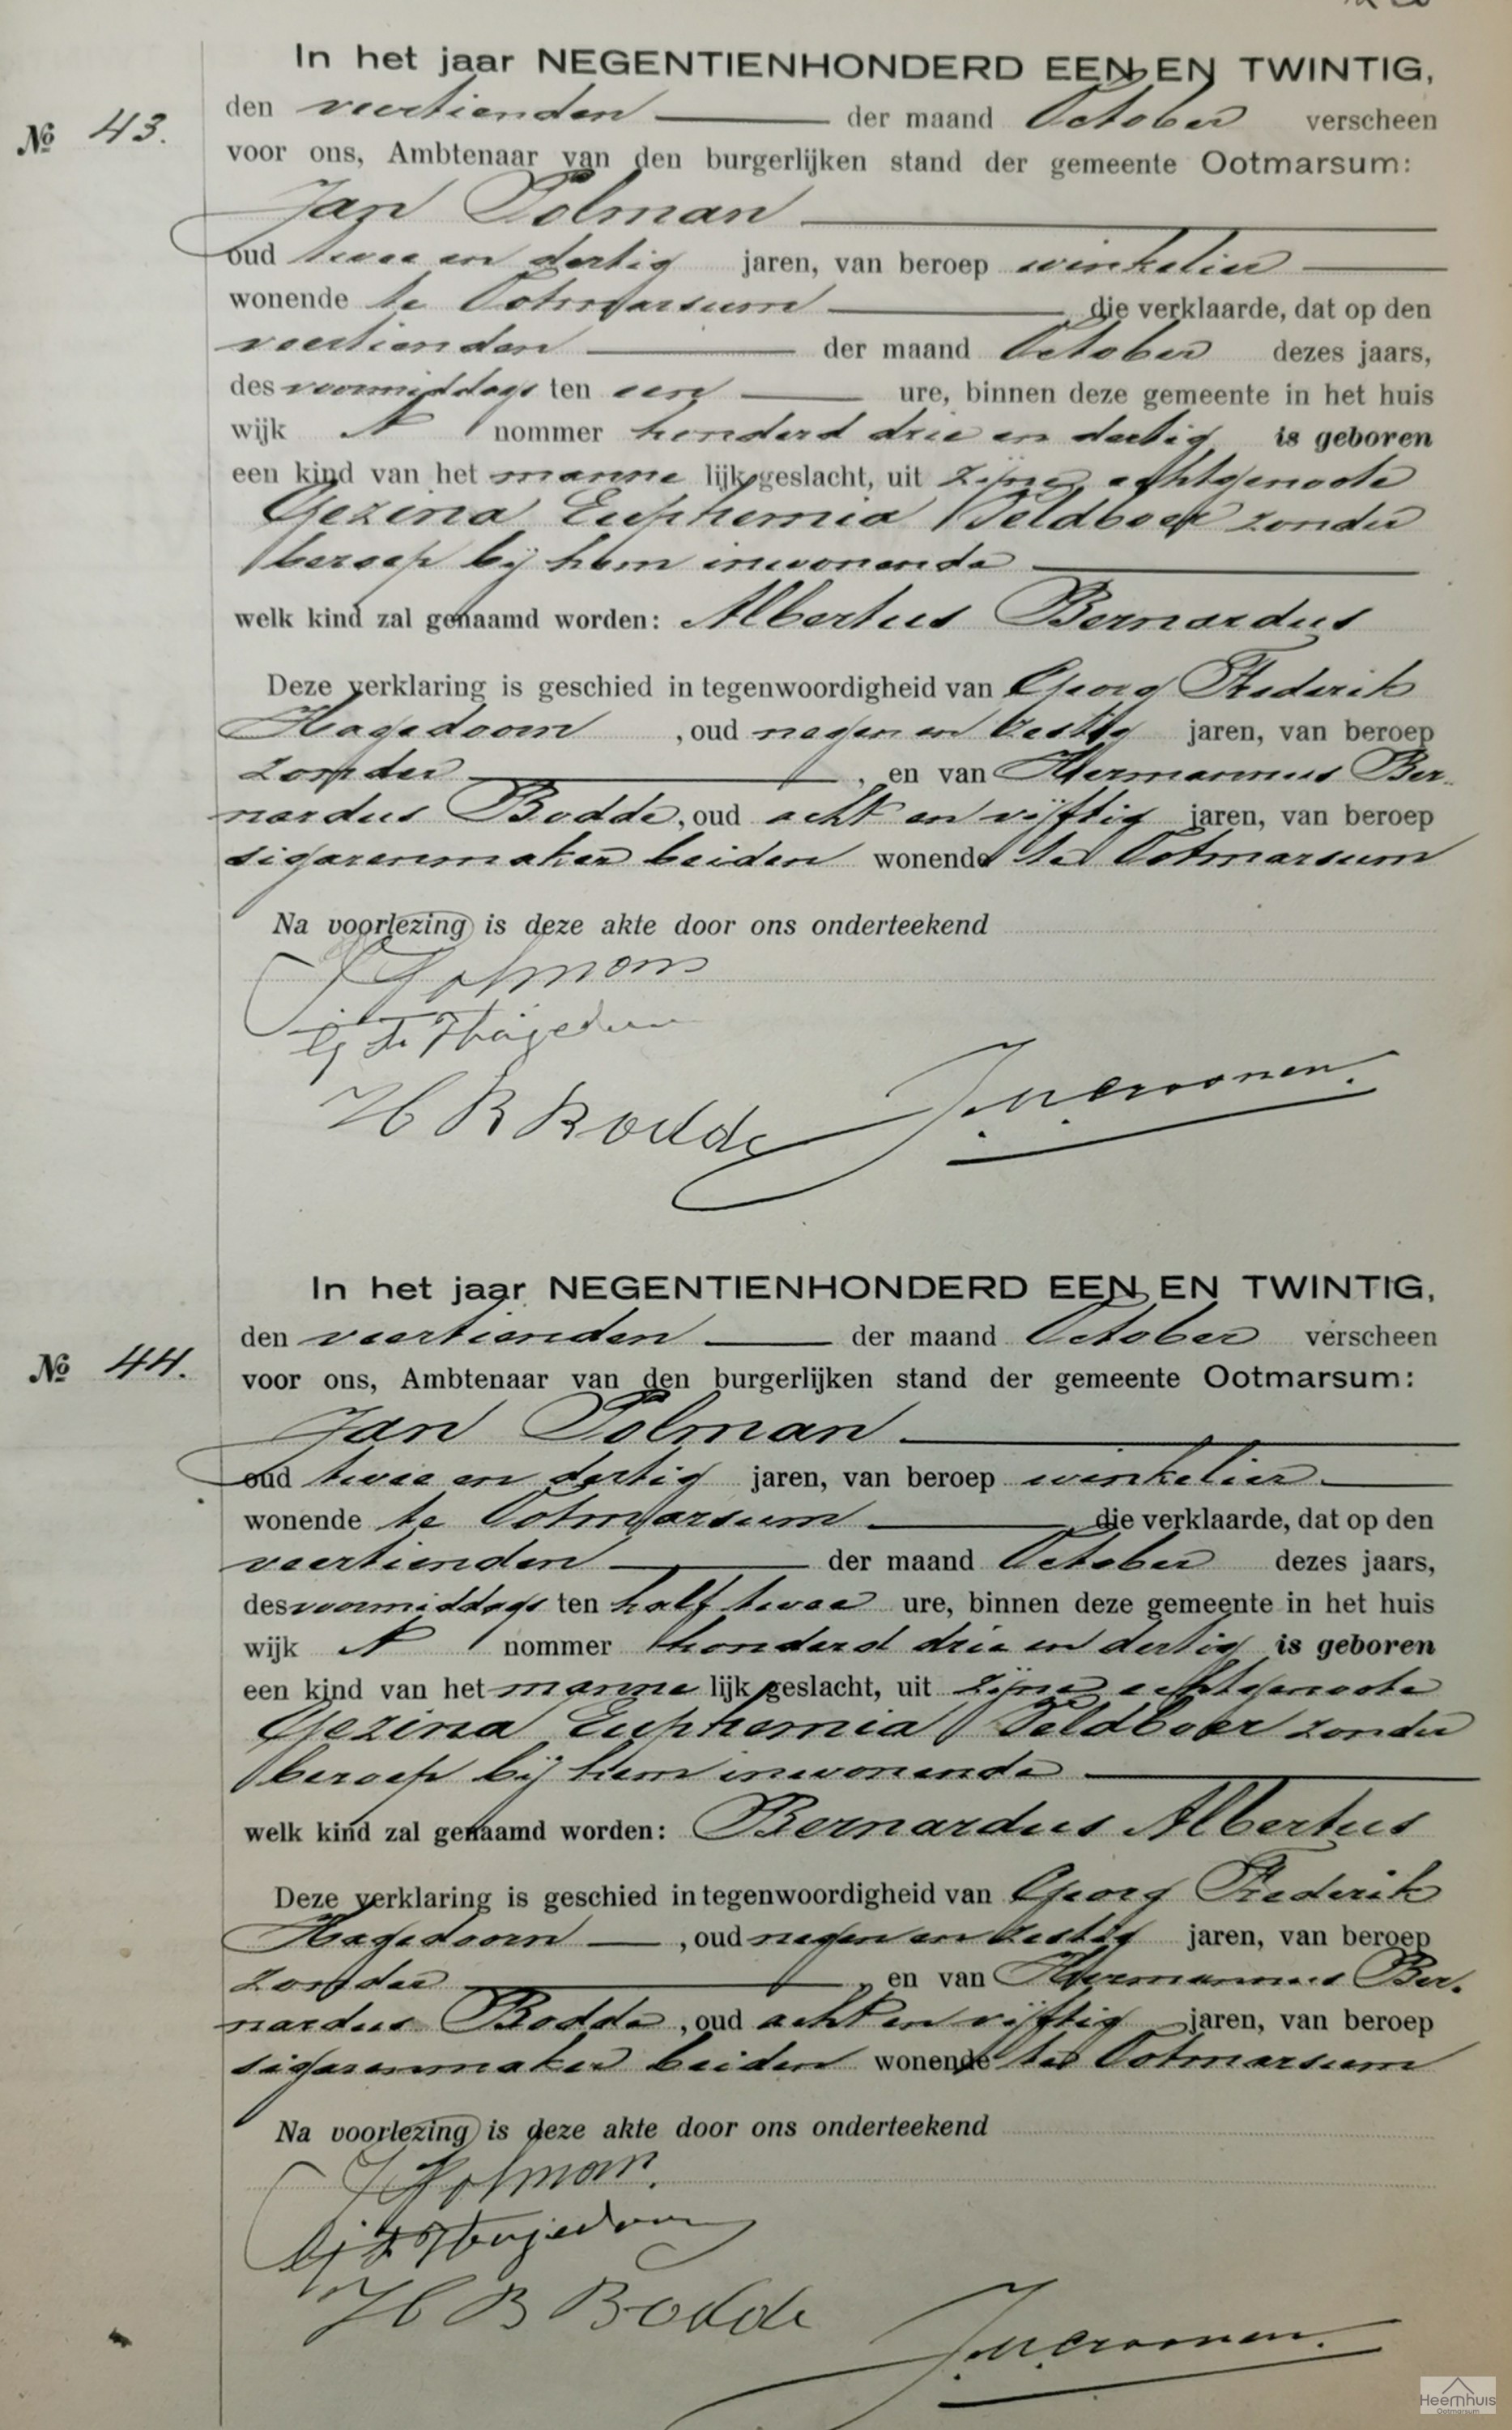 In het jaar NEGENTIENHONDERD EEN EN TWINTIG,
№ 43.
den veertienden der maand October verscheen
voor ons, Ambtenaar van den burgerlijken stand der gemeente Ootmarsum:
Jan Polman
oud twee en dertig jaren, van beroep winkelier
wonende te Ootmarsum die verklaarde, dat op den
veertienden der maand October dezes jaars,
des voormiddags ten een ure, binnen deze gemeente in het huis
wijk A nommer honderd drie en dertig is geboren
een kind van het manne lijk geslacht, uit zijne echtgenoote
Gezina Euphemia Veldboer zonder
beroep bij hem inwonende
welk kind zal genaamd worden: Albertus Bernardus
Deze verklaring is geschied in tegenwoordigheid van Georg Frederik
Hagedoorn, oud negen en zestig jaren, van beroep
zonder, en van Hermannus Ber-
nardus Bodde, oud acht en vijftig jaren, van beroep
sigarenmaker beiden wonende te Ootmarsum
Na voorlezing is deze akte door ons onderteekend
J Polman
G F Hagedoorn
H B Bodde
In het jaar NEGENTIENHONDERD EEN EN TWINTIG,
№ 44.
den veertienden der maand October verscheen
voor ons, Ambtenaar van den burgerlijken stand der gemeente Ootmarsum:
Jan Polman
oud twee en dertig jaren, van beroep winkelier
wonende te Ootmarsum die verklaarde, dat op den
veertienden der maand October dezes jaars,
des voormiddags ten half twee ure, binnen deze gemeente in het huis
wijk A nommer honderd drie en dertig is geboren
een kind van het manne lijk geslacht, uit zijne echtgenoote
Gezina Euphemia Veldboer zonder
beroep bij hem inwonende
welk kind zal genaamd worden: Bernardus Albertus
Deze verklaring is geschied in tegenwoordigheid van Georg Frederik
Hagedoorn, oud negen en zestig jaren, van beroep
zonder, en van Hermannus Ber-
nardus Bodde, oud acht en vijftig jaren, van beroep
sigarenmaker beiden wonende te Ootmarsum
Na voorlezing is deze akte door ons onderteekend
J Polman.
G F Hagedoorn
H B Bodde
Heemhuis
Ootmarsum